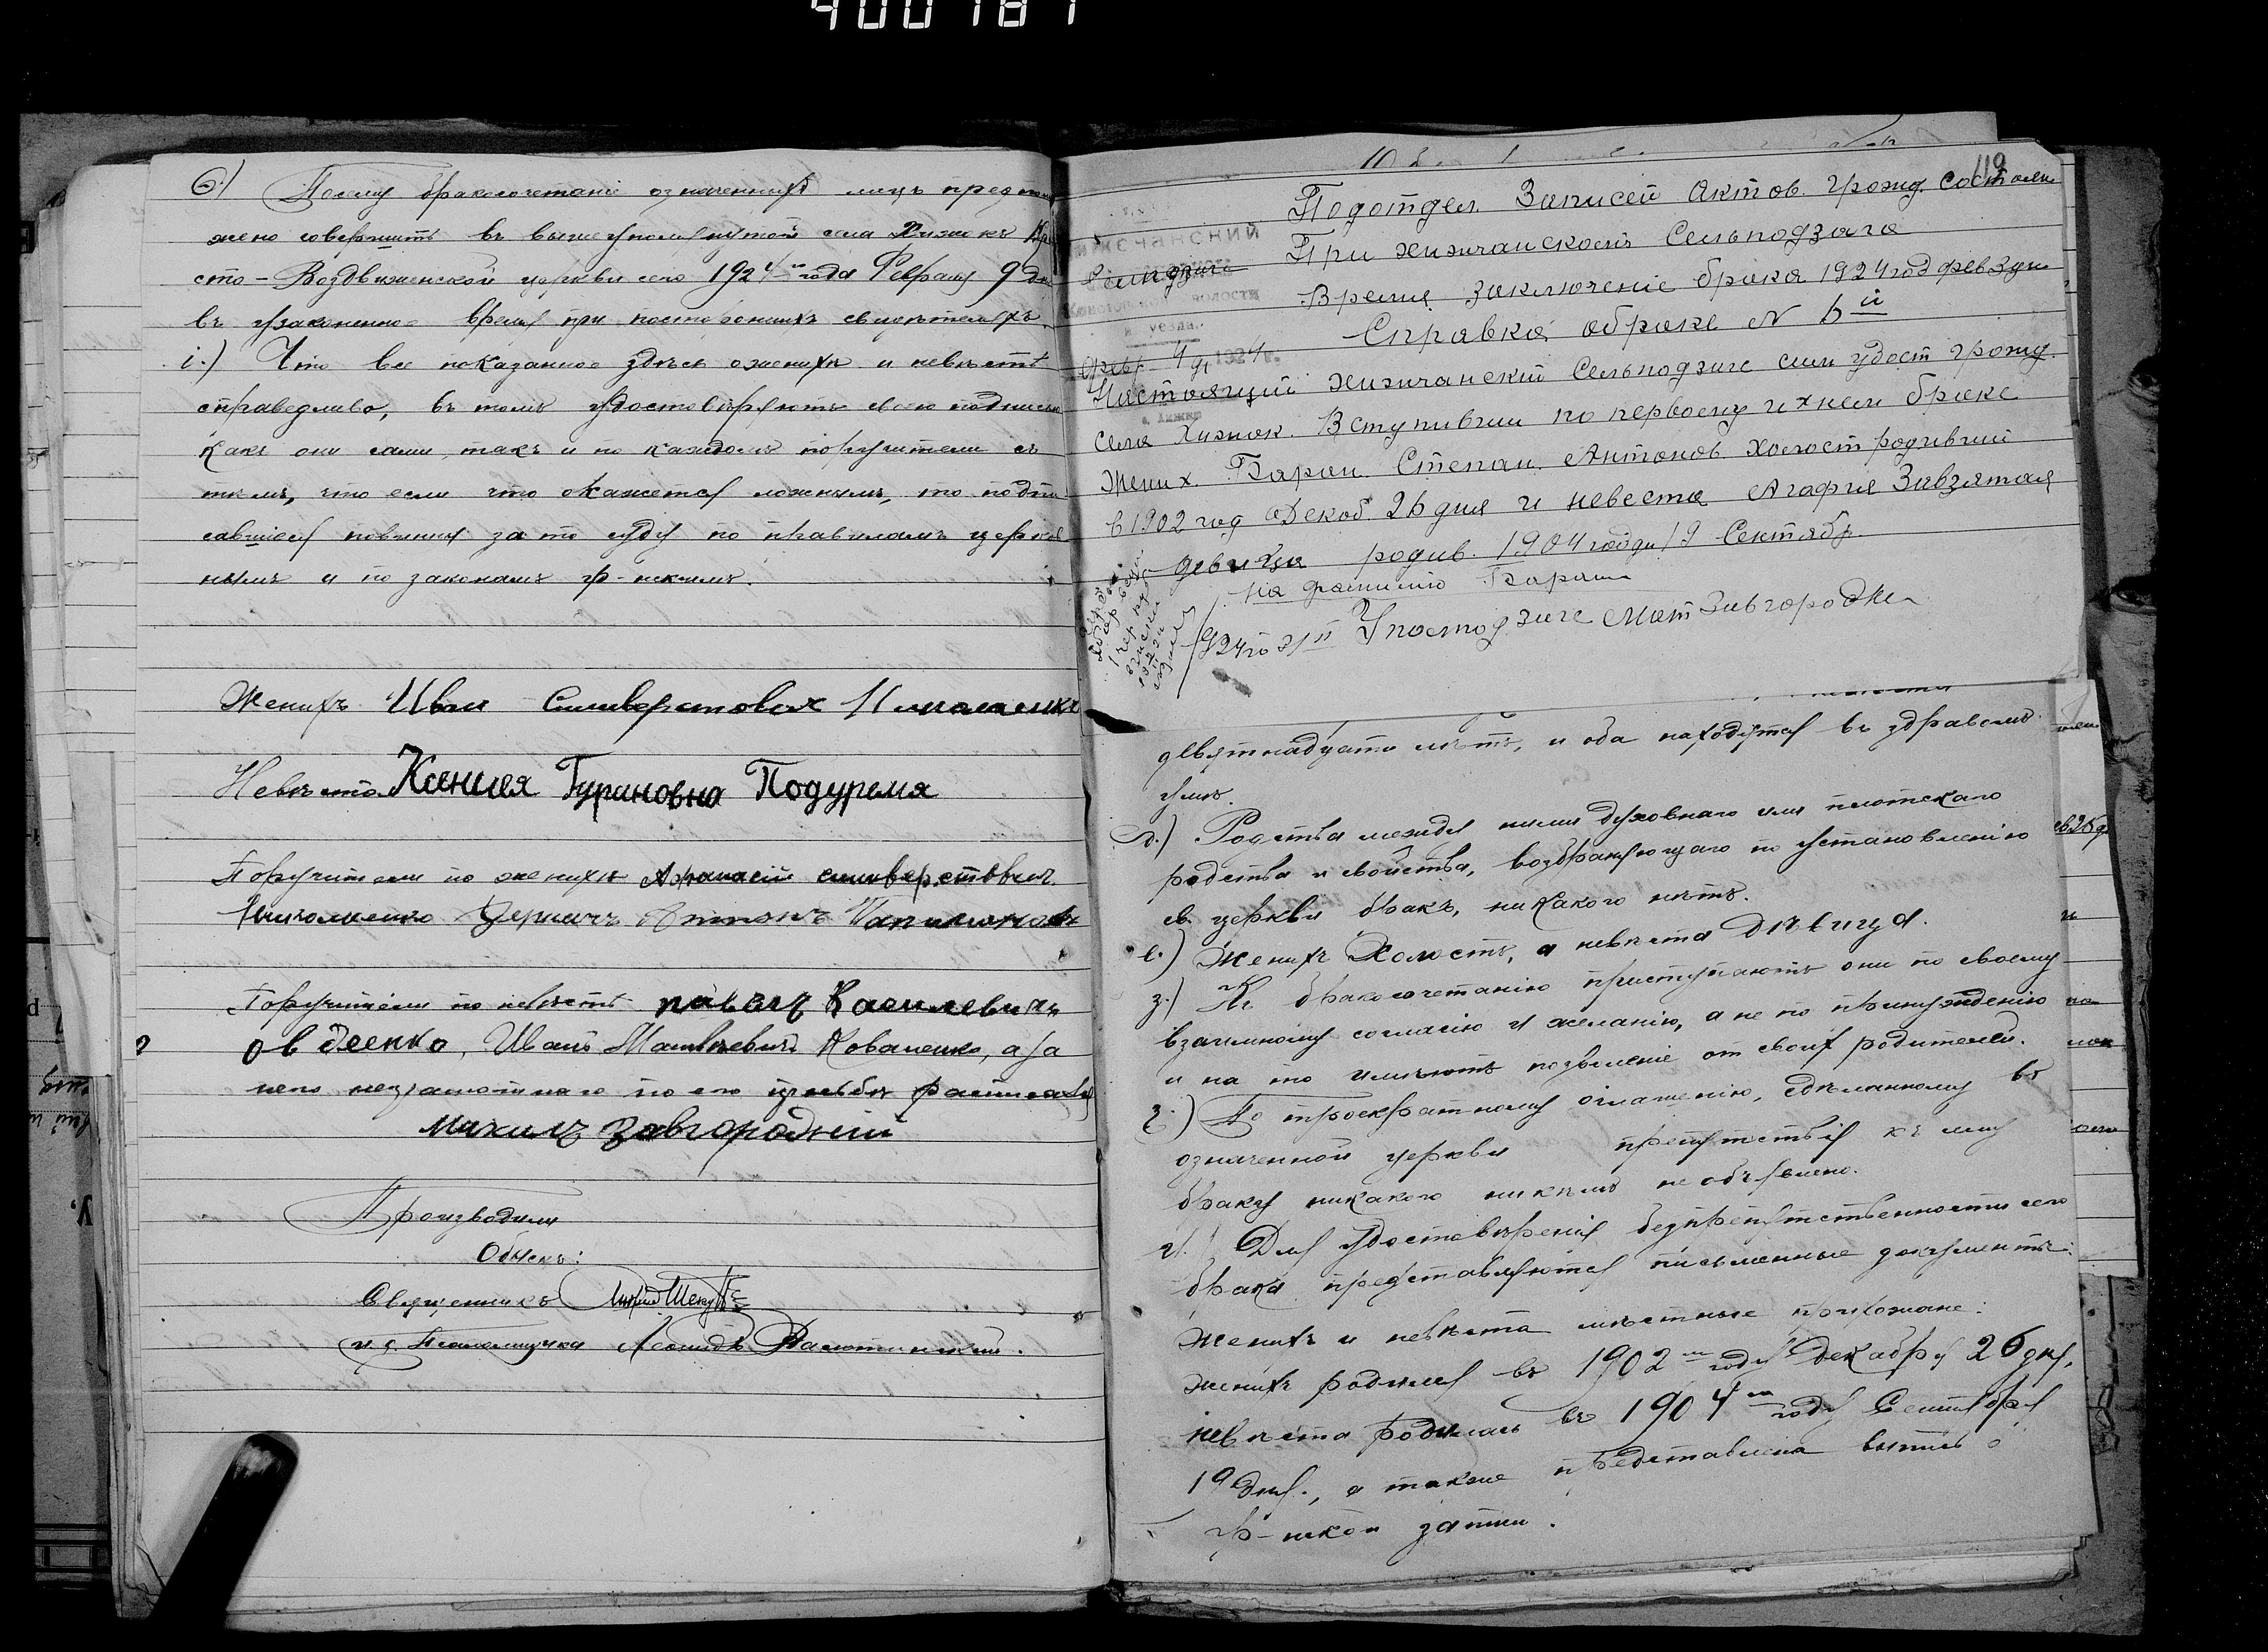 400787
Посему бракосочетаніе означенныхъ лицъ предполо
жено совершить въ вышеупомянутой села Хижокъ Кре
сто-Воздвиженской церкви сего 1924-го года Февраля 9 дня
въ узаконенное время при постороннихъ свидѣтеляхъ.
і.) Что все показанное здѣсь о женихѣ и невѣстѣ
справедливо, въ томъ удостовѣряютъ своею подписью
какъ они сами, такъ и по каждомъ поручители съ
тѣмъ, что если что окажется ложнымъ, то подпи
савшіеся повинны за то суду по правиламъ церков
нымъ и по законамъ гр-нскимъ.
Женихъ Иван Сильверстович
Невѣста Ксения Гуриновна Подуремя
Поручители по женихѣ Афанасій сильверстович
Антонъ
Поручители по невѣстѣ павелъ Василевичъ
овдеенко, Иванъ Матвѣевичъ Коваленко, а за
него неграмотнаго по его просьбѣ расписался
Михаилъ Завгородній
Производили
Обыскъ:
Священникъ
и. д. Псаломщика Леонидъ
119
Подотдел Записей Актов Гражд. Состоян
При хижчанском Сельподзаге
Время заключеніе брака 1924 год фев 3 дня
Справка о браке N 6й
Февр 4 д. 1924 г.
Настоящий хижчанский Сельподзаге сим удост гражд.
села Хижок. Вступивши по первому ихнем браке
жених Баран Степан Антонов холост родивший
в 1902 год Декоб. 26 дня и невеста Агафия Завзятая
девица родив. 1904 года 19 Сентябр.
на фамилию Баран
Завгородне
девятнадцати лѣтъ, и оба находятся въ здравомъ
умѣ.
д.) Родства между ними духовнаго или плотскаго
родства и свойства, возбраняющаго по установленію
св. церкви бракъ, никакого нѣтъ.
е.) Женихъ Холостъ, а невѣста Дѣвица.
з.) Къ бракосочетанію приступаютъ они по своему
взаимному согласію и желанію, а не по принужденію
и на то имѣютъ позволеніе от своих родителей.
По троекратному оглашенію, сдѣланному въ
означенной церкви препятствія къ сему
браку никакого никѣмъ не объявлено.
и.) Для удостовѣренія безпрепятственности сего
брака представляются письменные документы:
Женихъ и невѣста мѣстные прихожане:
женихъ родился въ 1902-м году Декабря 26 дня,
невѣста родилась въ 1904-м году Сентября
19 дня., а также представлена выпись о
гр-нской записи.